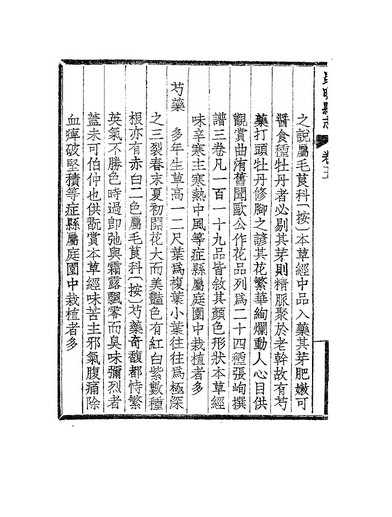 之說屬毛茛科（按）本草經中品入藥其芽肥嫩可
醬食種牡丹者必剔其芽則精脈聚於老幹故有芍
藥打頭牡丹修腳之諺其花繁華絢爛動人心目供
觀賞曲洧舊聞歐公作花品列爲二十四種張峋撰
譜三卷凡一百一十九品皆敘其顏色形狀本草經
味辛寒主寒熱中風等症縣屬庭園中栽植者多
芍藥　多年生草高一二尺葉爲複葉小葉往往爲極深
之三裂春末夏初開花大而美豔色有紅白紫數種
根亦有赤白二色屬毛茛科（按）芍藥奇馥都恃繁
英氣不勝色時過卽弛與霜露飄零而臭味彌烈者
葢未可伯仲也供翫賞本草經味苦主邪氣腹痛除
血痺破堅積等症縣屬庭園中栽植者多